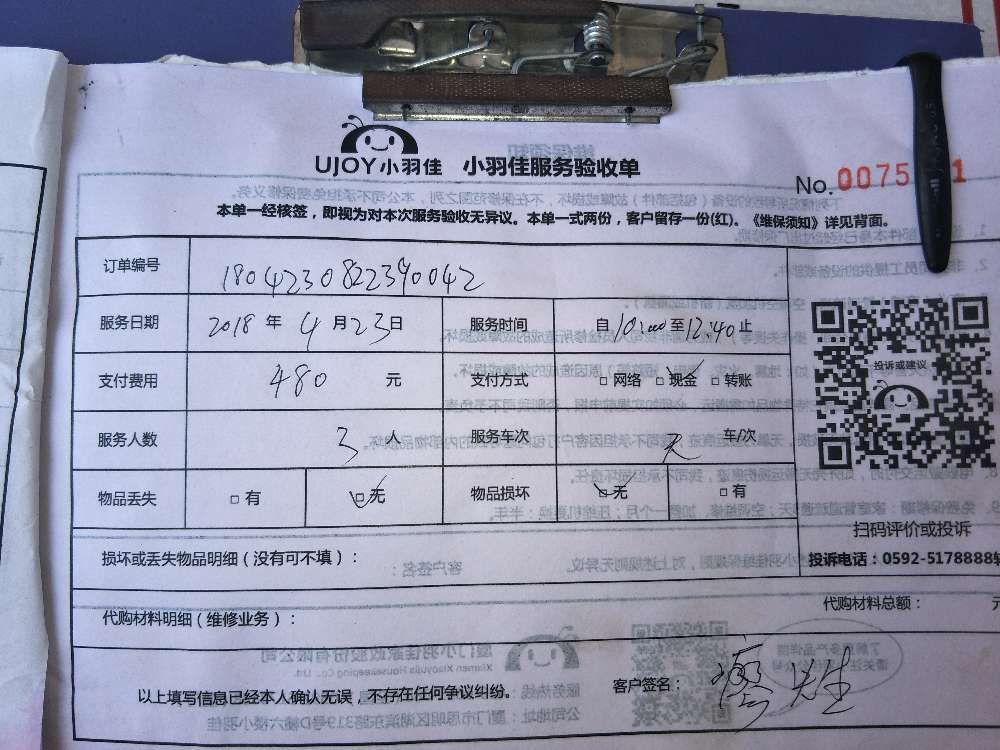 UJOY小羽佳 小羽佳服务验收单
No. 0075 1
本单一经核签，即视为对本次服务验收无异议。本单一式两份，客户留存一份(红)。《维保须知》详见背面。
订单编号 1804230822390042
服务日期 2018 年 4 月 23 日 服务时间 自 10:00 至 12:40 止
支付费用 480 元 支付方式 □ 网络 □ 现金 □ 转账
服务人数 3 人 服务车次 无 车/次
物品丢失 □ 有 □ 无 物品损坏 □ 无 □ 有
投诉或建议
扫码评价或投诉
投诉电话：0592-5178888转
损坏或丢失物品明细（没有可不填）：
代购材料明细（维修业务）： 代购材料总额： 元
以上填写信息已经本人确认无误，不存在任何争议纠纷。 客户签名： 廖先生